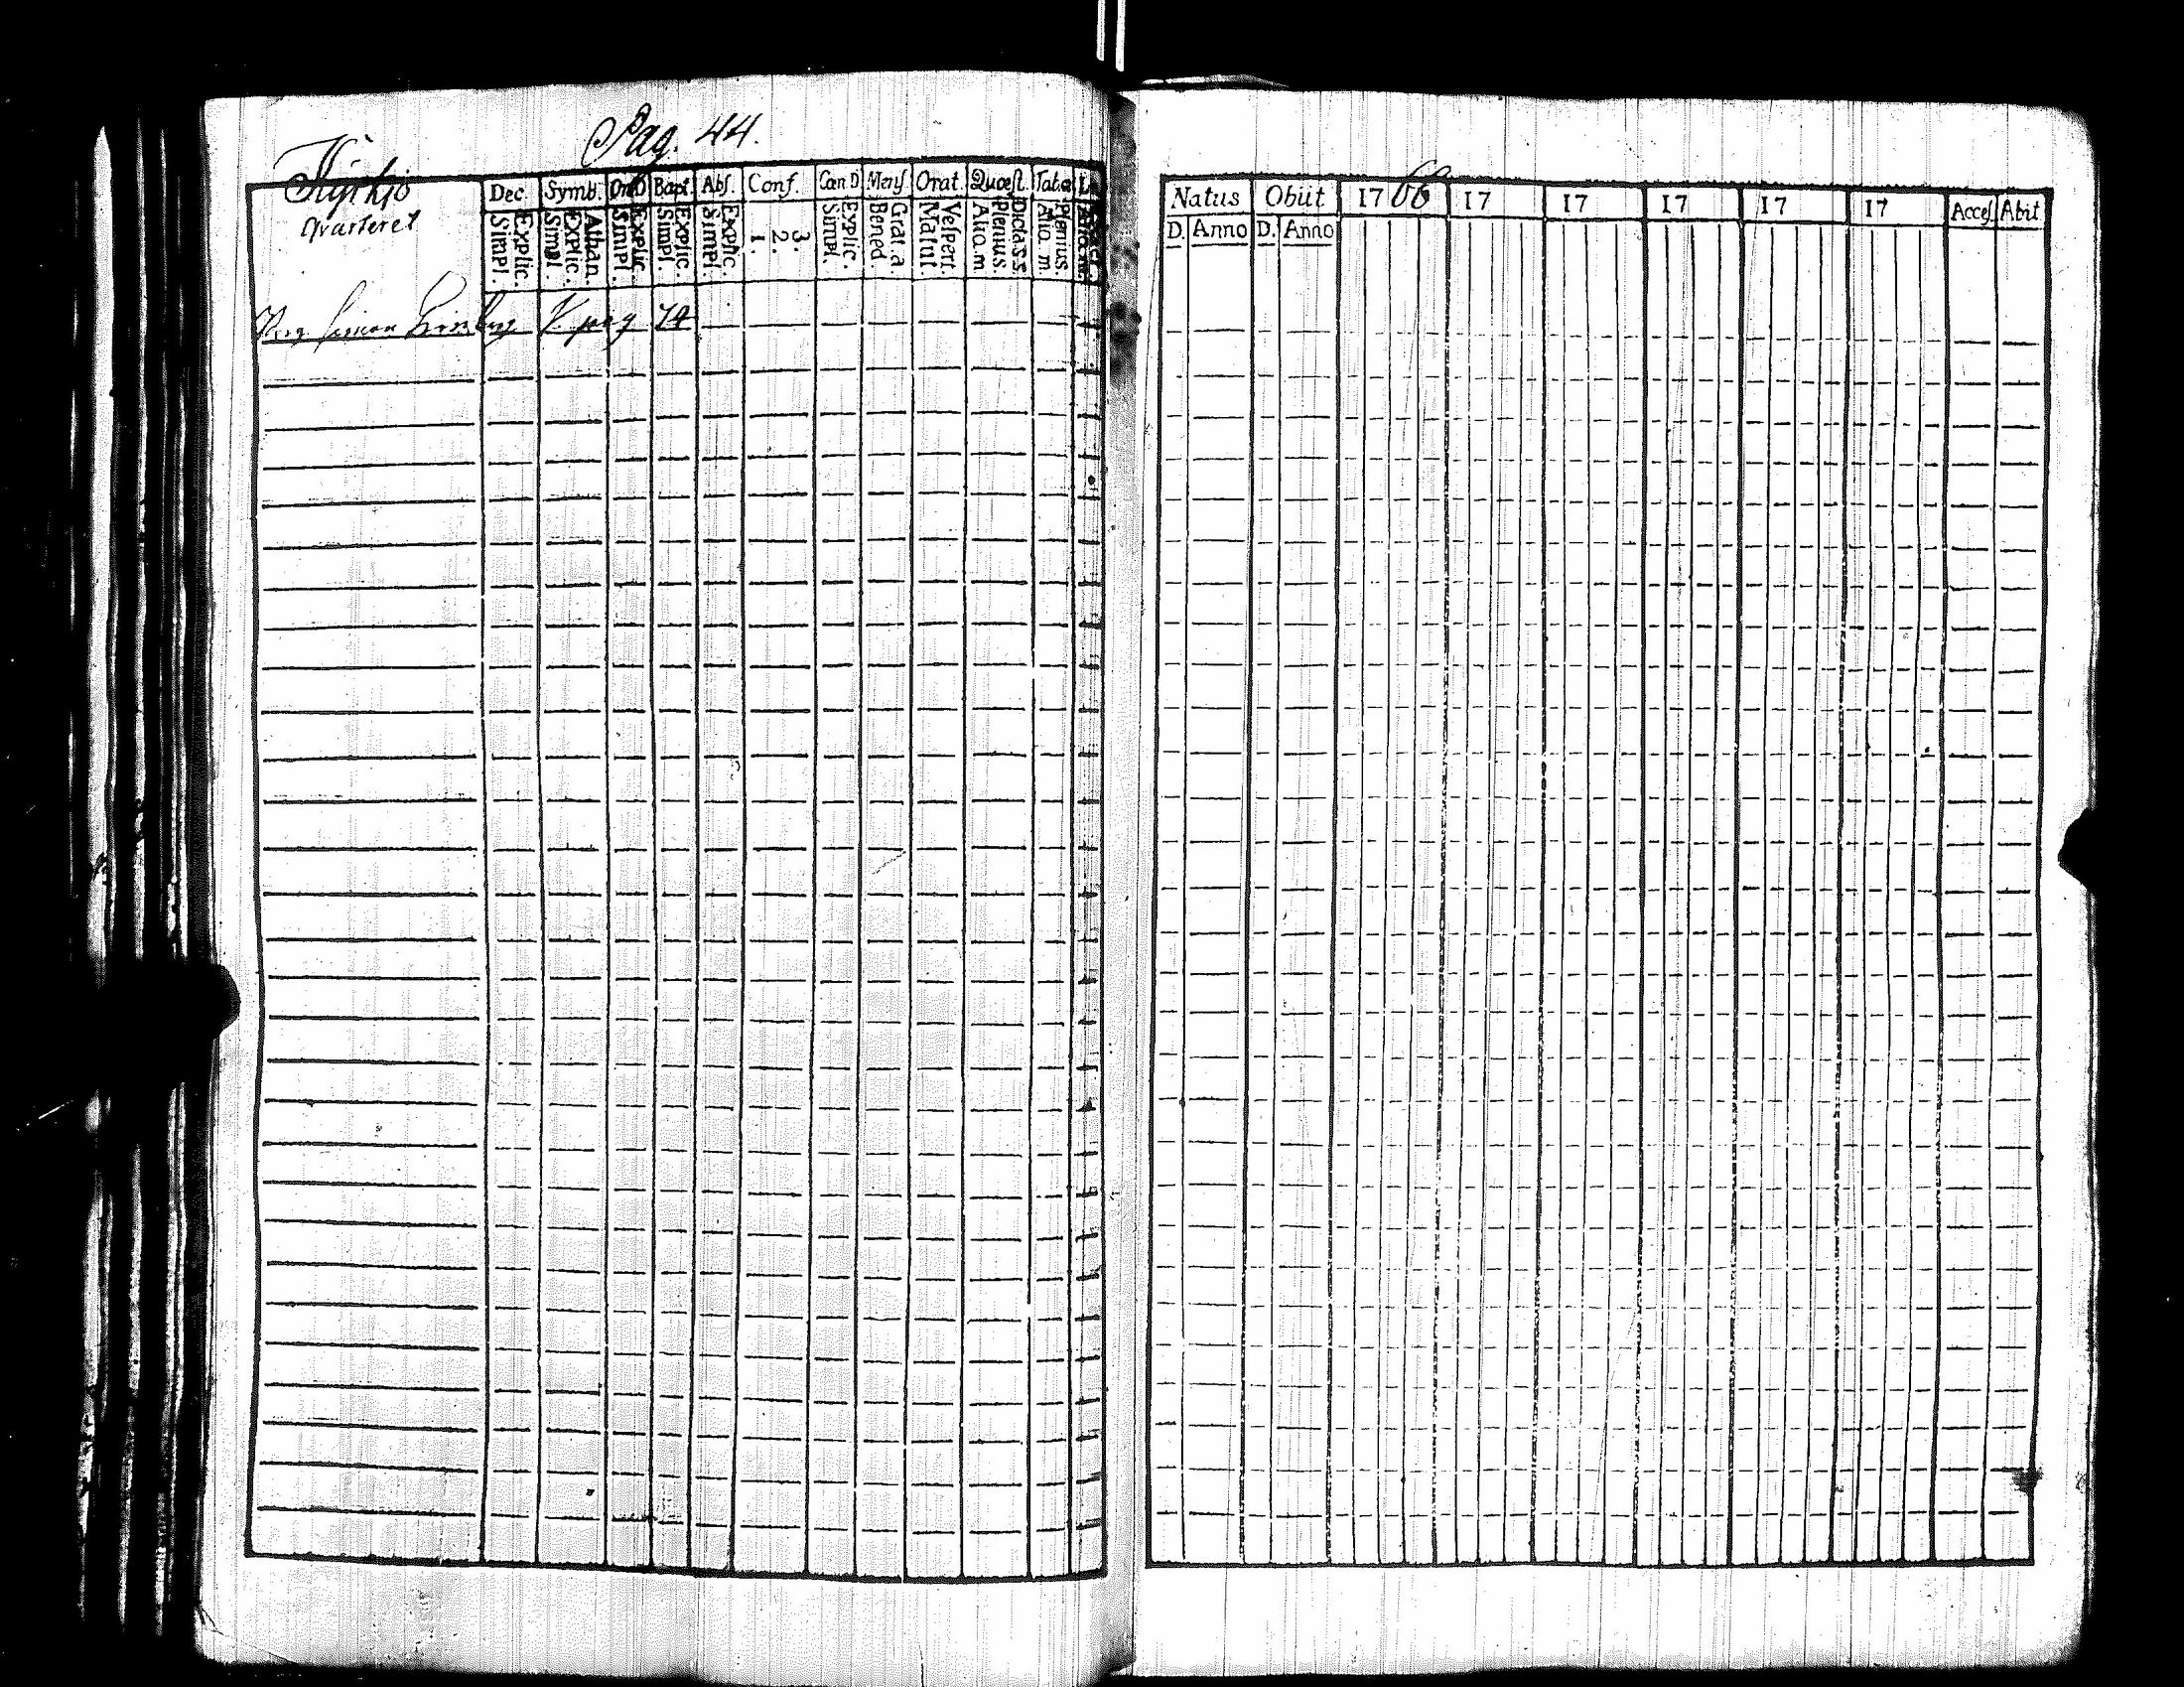 Pag. 44.
Kyrkio
qvarteret
Dec. Symb. Or.D Bapt. Abs. Conf. Can D Mens. Orat. Quæst. Tab.œ
Explic. Simpl. Athan. Explic. Simpl. Explic. Simpl. Explic. Simpl. Explic. Simpl. 3. 2. 1. Explic. Simpl. Grat. a. Bened. Vespert. Matut. Dicta S.S. Plenius. Alio. m. Plenius. Alio. m.
V. pag 74
Natus Obiit 1766 17 17 17 17 17 Acces. Abit.
D. Anno D. Anno